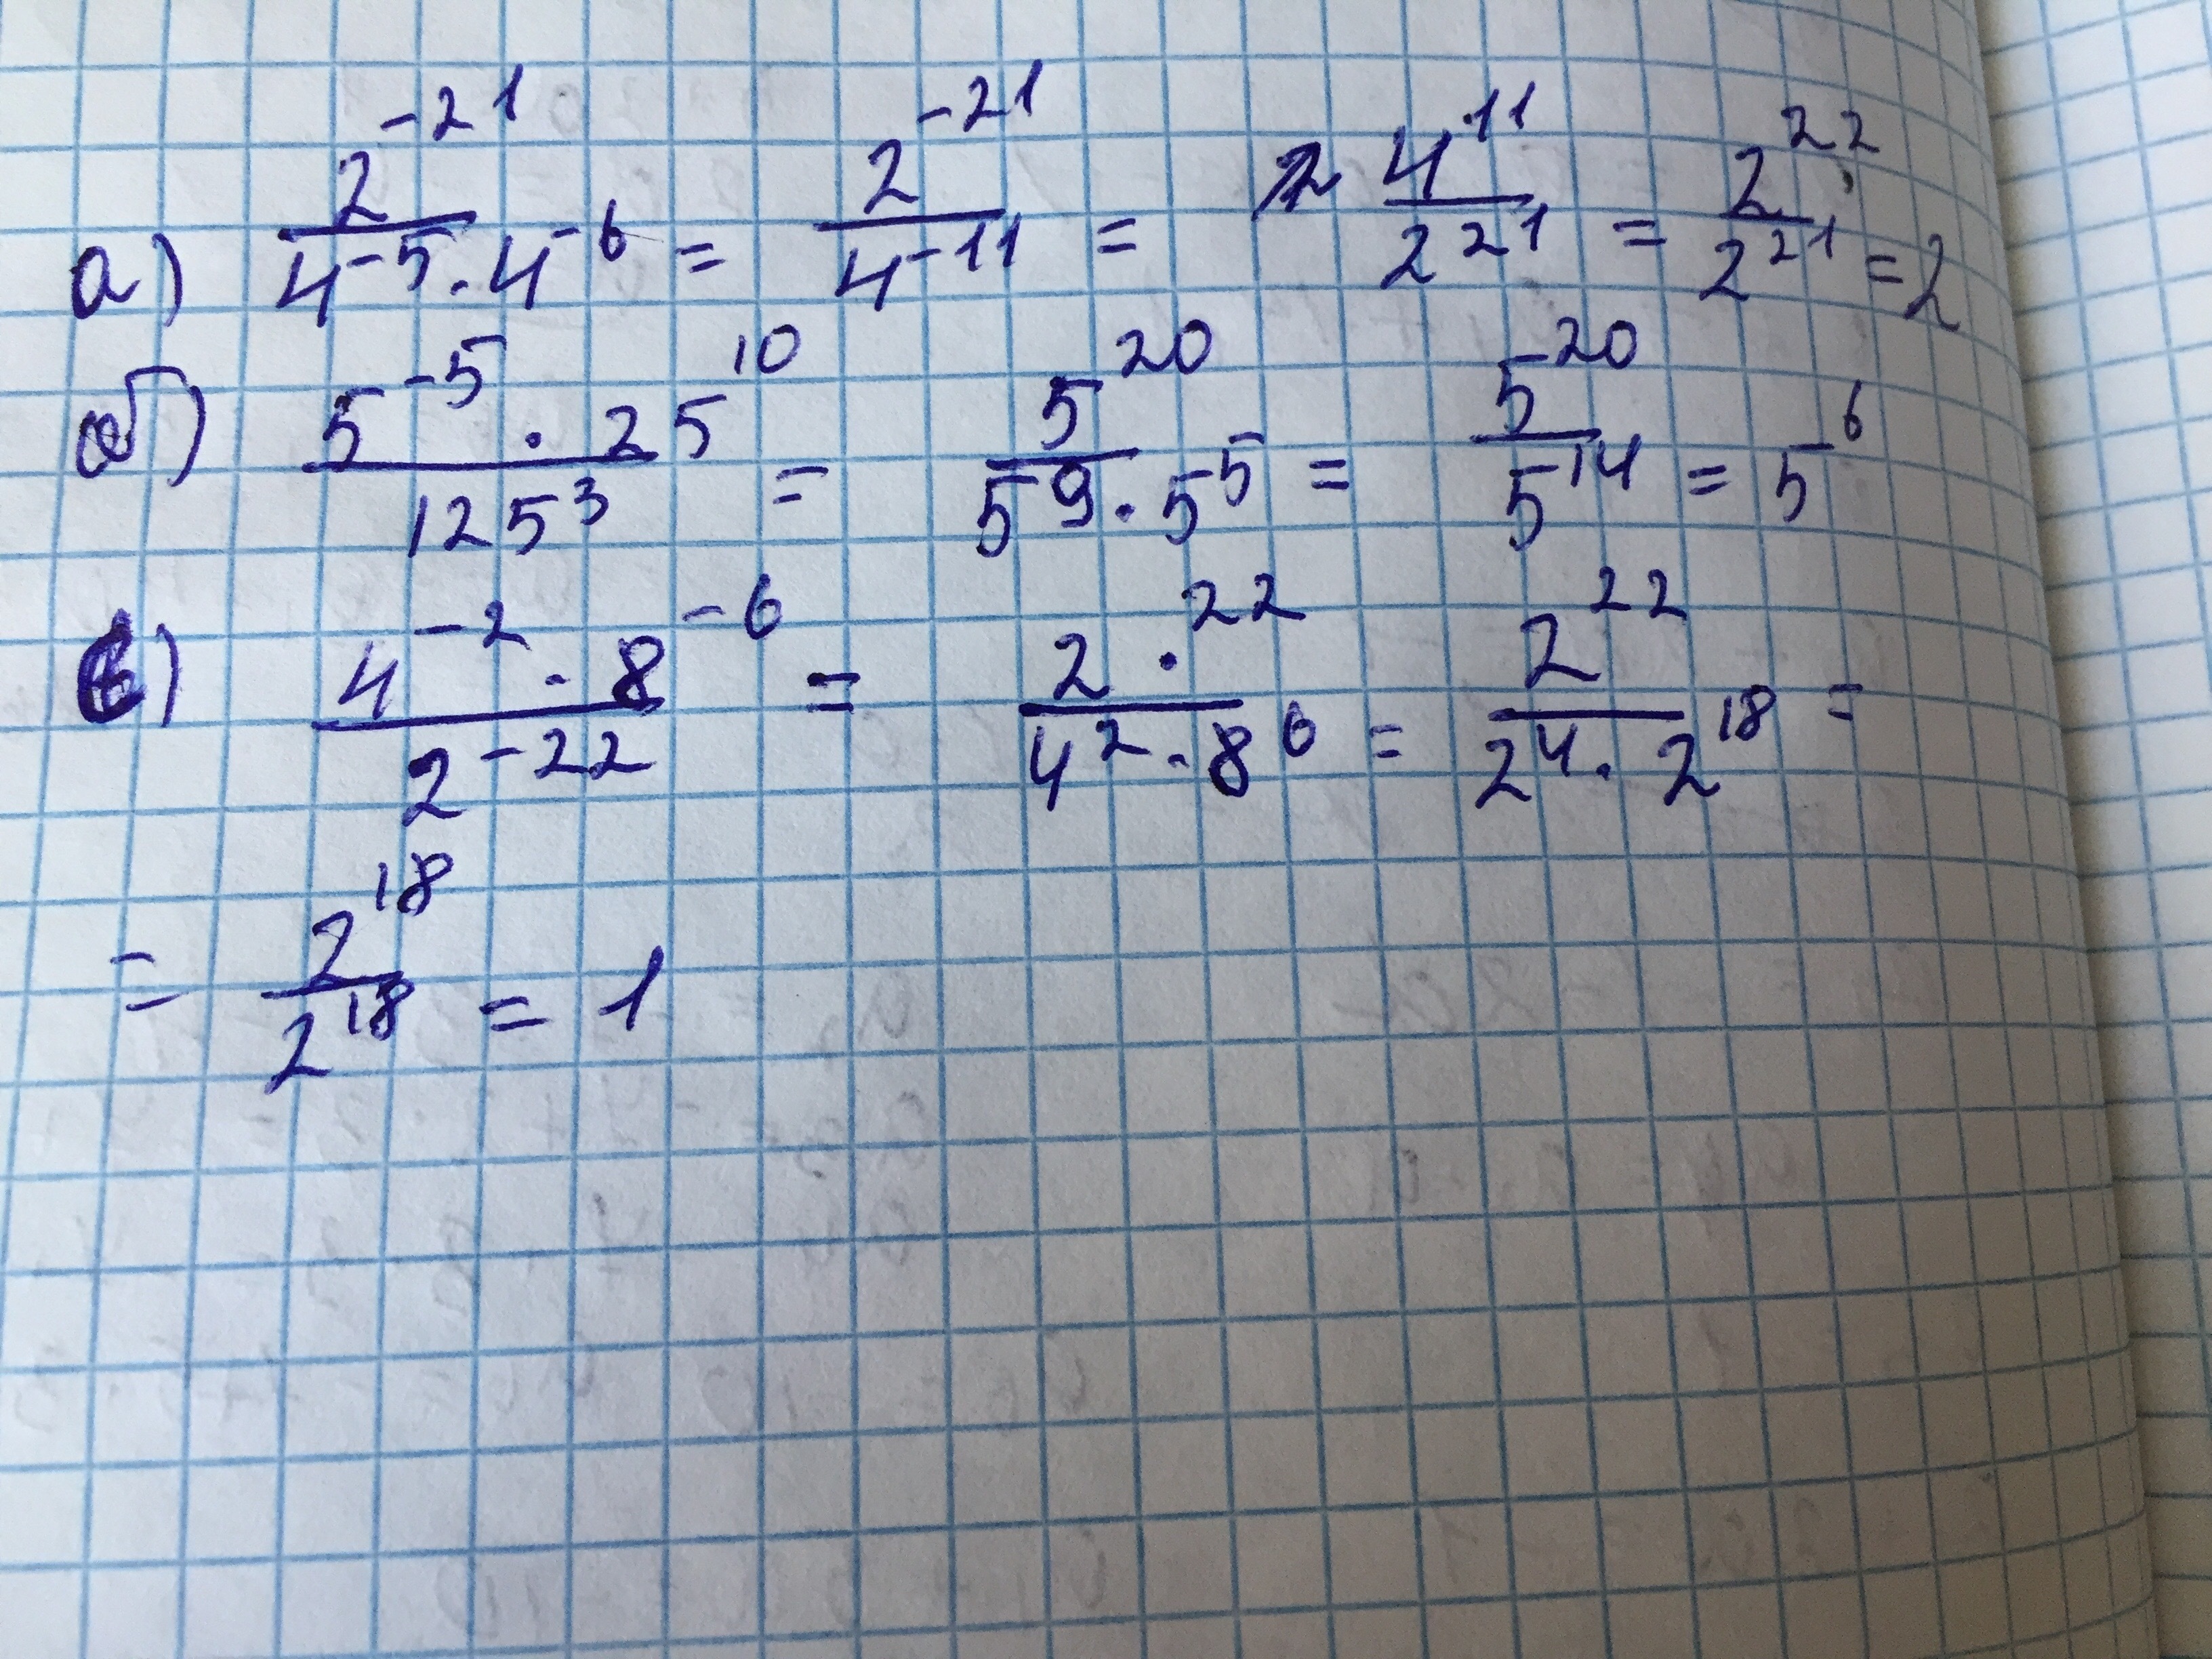 а) 2^-21 / 4^-5 · 4^-6 = 2^-21 / 4^-11 = 4^11 / 2^21 = 2^22 / 2^21 = 2
б) 5^-5 · 25^10 / 125^3 = 5^20 / 5^9 · 5^5 = 5^20 / 5^14 = 5^6
в) 4^-2 · 8^-6 / 2^-22 = 2·^22 / 4^2 · 8^6 = 2^22 / 2^4 · 2^18 =
= 2^18 / 2^18 = 1